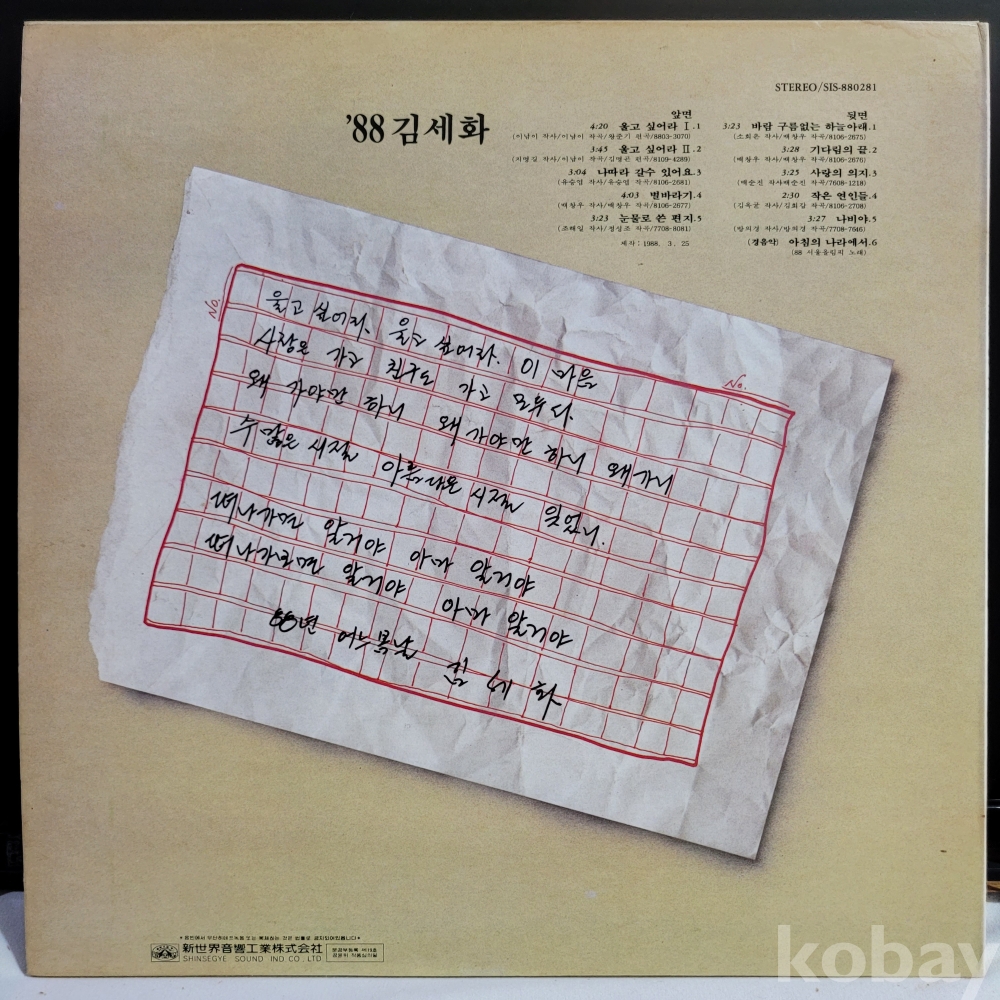 STEREO/SIS-880281
'88 김세화
앞면
4:20 울고 싶어라 Ⅰ.1
(이남이 작사/이남이 작곡/황준기 편곡/8803-3070)
3:45 울고 싶어라 Ⅱ.2
(지명길 작사/이남이 작곡/김명곤 편곡/8109-4289)
3:04 나따라 갈수 있어요.3
(유승엽 작사/유승엽 작곡/8106-2681)
4:03 별바라기.4
(배창우 작사/배창우 작곡/8106-2677)
3:23 눈물로 쓴 편지.5
(조해일 작사/정성조 작곡/7708-8081)
제작: 1988. 3. 25
뒷면
3:23 바람 구름없는 하늘아래.1
(소희은 작사/배창우 작곡/8106-2675)
3:28 기다림의 끝.2
(배창우 작사/배창우 작곡/8106-2676)
3:25 사랑의 의지.3
(배순진 작사배순진 작곡/7608-1218)
2:30 작은 연인들.4
(김욱균 작사/김희갑 작곡/8106-2708)
3:27 나비야.5
(방의경 작사/방의경 작곡/7708-7646)
(경음악) 아침의 나라에서.6
(88 서울올림픽 노래)
No.
No.
울고 싶어라. 울고 싶어라. 이 마음
사랑은 가고 친구도 가고 모두 다.
왜 가야만 하니 왜 가야만 하니 왜 가니
수많은 시절 아름다운 시절 잊었니.
떠나가면 알거야 아마 알거야
떠나가면 알거야 아마 알거야
88년 어느봄날 김 세 화
新世界音響工業株式会社
SHINSEGYE SOUND IND CO., LTD.
kobay